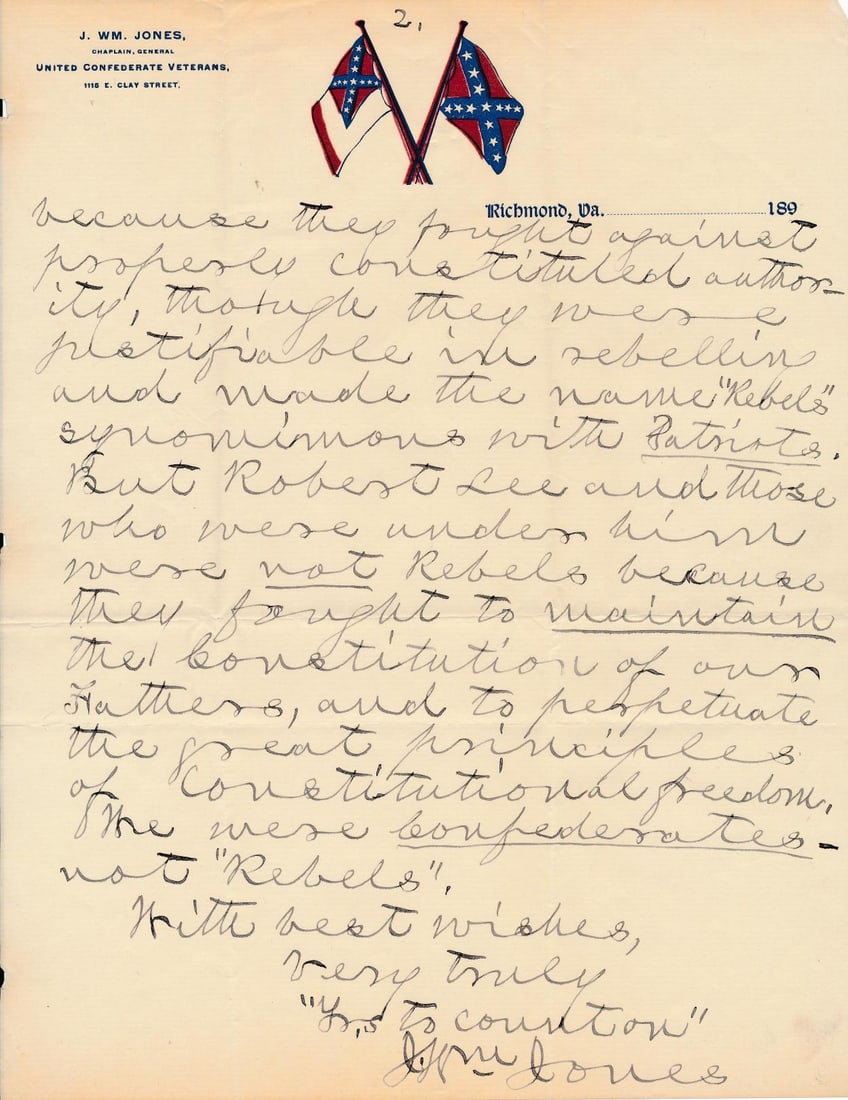 2.
J. WM. JONES,
CHAPLAIN, GENERAL
UNITED CONFEDERATE VETERANS,
1115 E. CLAY STREET.
Richmond, Va. 189
because they fought against
properly constituted author-
ity, though they were
justifiable in rebelling
and made the name "Rebels"
synomimous with Patriots.
But Robert Lee and those
who were under him
were not Rebels because
they fought to maintain
the Constitution of our
Fathers, and to perpetuate
the great principles
of Constitutional freedom.
We were Confederates-
not "Rebels".
With best wishes,
Very truly
"Yrs to count on"
J. Wm Jones